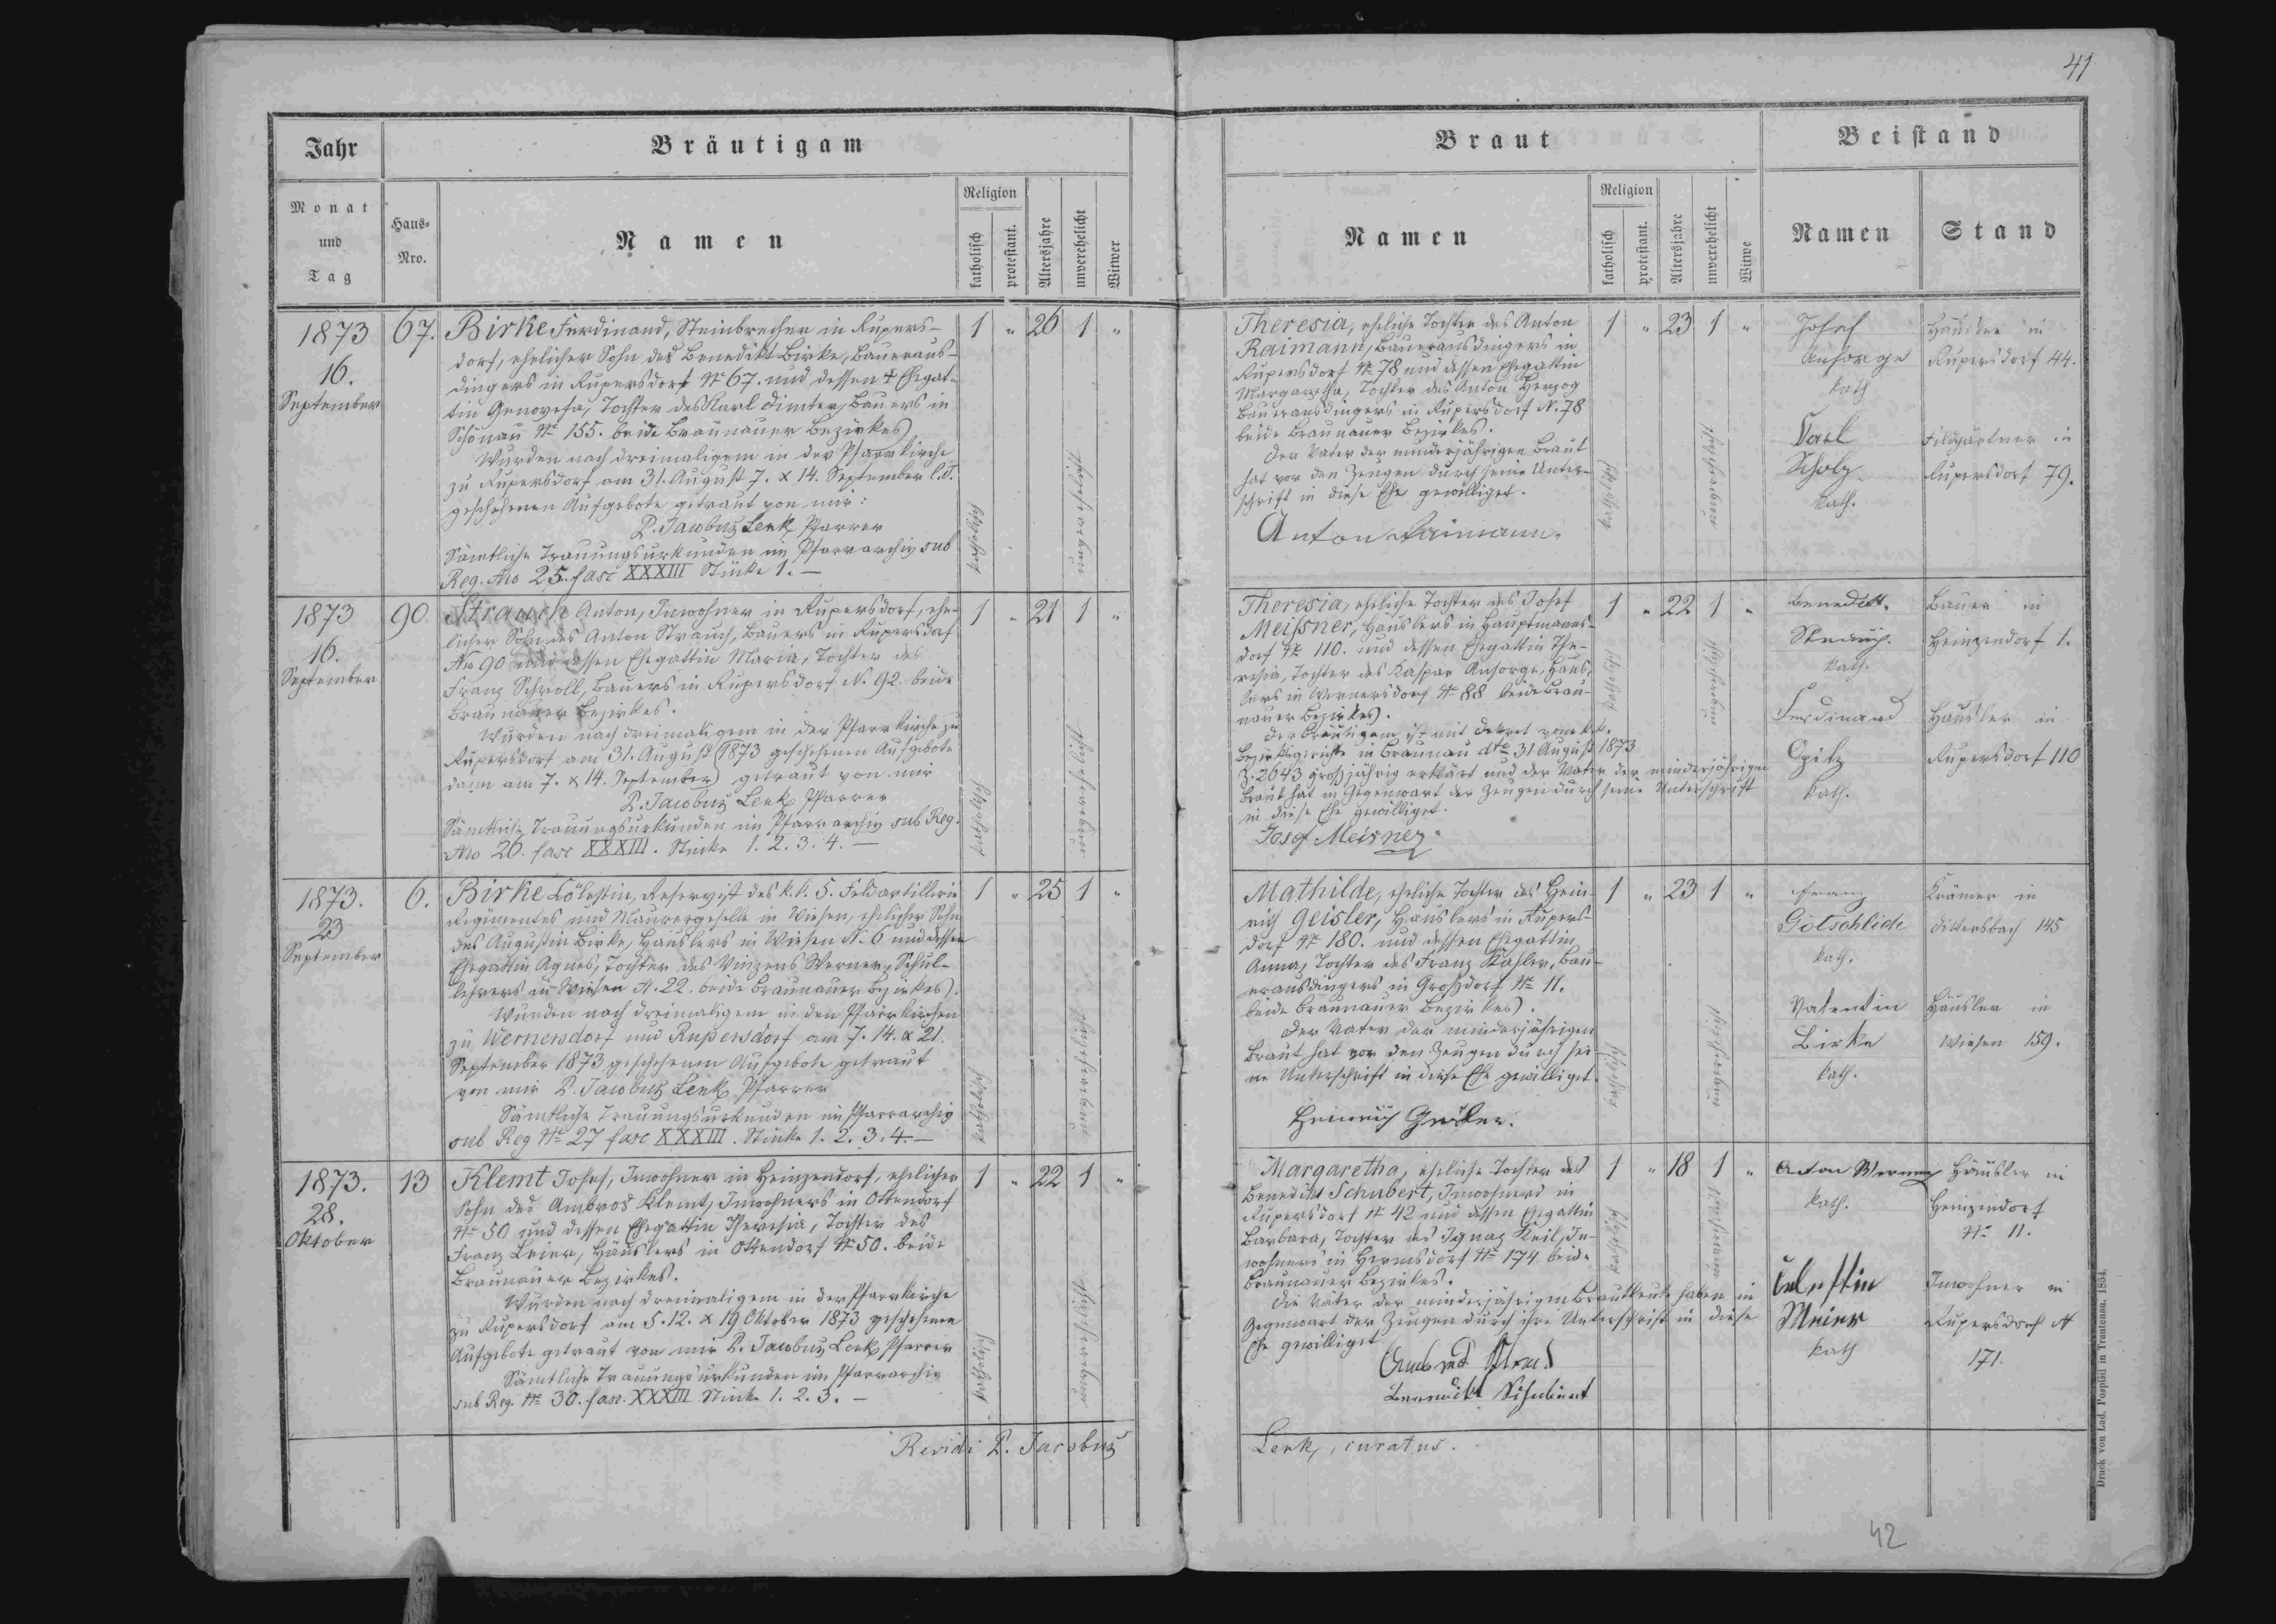 41
Jahr
Bräutigam
Monat
und
Tag
Haus-
Nro.
Namen
Religion
katholisch
protestant.
Altersjahre
unverehelicht
Witwer
Braut
Beistand
Namen
Religion
katholisch
protestant.
Altersjahre
unverehelicht
Witwe
Namen
Stand
1873
16.
September
67.
Birke Ferdinand, Steinbrecher in Rupers-
dorf, ehelicher Sohn des Benedikt Birke, Baueraus-
dingers in Rupersdorf № 67. und dessen † Ehegat-
tin Genovefa, Tochter des Karl Dimter, Bauers in
Schönau № 155. beide Braunauer Bezirkes)
Wurden nach dreimaligem in der Pfarrkirche
zu Rupersdorf am 31. August 7. & 14. September l. J.
geschehenen Aufgebote getraut von mir:
P. Jacobus Lenk, Pfarrer
Sämtliche Trauungsurkunden im Pfarrarchiv sub
Reg. Nro 25. fasc XXXIII Stücke 1. —
1 „ 26 1 „
katholisch
ungeschwängert
Theresia, eheliche Tochter des Anton
Raimann, Bauerausdingers in
Rupersdorf № 78 und dessen Ehegattin
Margaretha, Tochter des Anton Herzog
Bauerausdingers in Rupersdorf N. 78
beide Braunauer Bezirkes.
Der Vater der minderjährigen Braut
hat vor den Zeugen durch seine Unter-
schrift in diese Ehe gewilliget.
Anton Raimann.
1 „ 23 1 „
Josef
Ansorge
kath
Häusler in
Rupersdorf 44.
Karl
Scholz
kath.
Feldgärtner in
Rupersdorf 79.
1873
16.
September
90
Strauch Anton, Inwohner in Rupersdorf, ehe-
licher Sohn des Anton Strauch, Bauers in Rupersdorf
Nro 90 und dessen Ehegattin Maria, Tochter des
Franz Schroll, Bauers in Rupersdorf N. 92. beide
Braunauer Bezirkes.
Wurden nach dreimaligem in der Pfarrkirche zu
Rupersdorf am 31. August 1873 geschehenen Aufgebote
dann am 7. & 14. September) getraut von mir
P. Jacobus Lenk, Pfarrer
Sämtliche Trauungsurkunden im Pfarrarchiv sub Reg.
Nro 26. fasc XXXIII. Stücke 1. 2. 3. 4. —
1 „ 21 1 „
katholisch
Theresia, eheliche Tochter des Josef
Meissner, Häuslers in Hauptmanns-
dorf № 110. und dessen Ehegattin The-
resia, Tochter des Kaspar Ansorge, Häus-
lers in Wernersdorf № 88 beide Brau-
nauer Bezirkes).
Der Bräutigam ist mit Dekret vom k. k.
Bezirksgerichte in Braunau dto 31 August 1873
Z. 2643 großjährig erklärt und der Vater der minderjährigen
Braut hat in Gegenwart der Zeugen durch seine Unterschrift
in diese Ehe gewilliget.
Josef Meisner
1 „ 22 1 „
Benedikt
Strauch.
kath.
Bauer in
Heinzendorf 1.
Ferdinand
Opitz
kath.
Häusler in
Rupersdorf 110
1873.
23
September
6.
Birke Cölestin, Reservist des k. k. 5. Feldartillerie
Regimentes und Maurergeselle in Wiesen, ehelicher Sohn
des Augustin Birke, Häuslers in Wiesen N. 6 und dessen
Ehegattin Agnes, Tochter des Vinzens Werner, Schul-
lehrers in Wiesen N. 22. beide Braunauer Bezirkes).
Wurden nach dreimaligem in den Pfarrkirchen
zu Wernersdorf und Rupersdorf am 7. 14. & 21.
September 1873 geschehenen Aufgebote getraut
von mir P. Jacobus Lenk, Pfarrer
Sämtliche Trauungsurkunden im Pfarrarchiv
sub Reg № 27 fasc XXXIII. Stücke 1. 2. 3. 4. —
1 „ 25 1 „
katholisch
Mathilde, eheliche Tochter des Hein-
rich Geisler, Häuslers in Rupers-
dorf № 180. und dessen Ehegattin
Anna, Tochter des Franz Kahler, Bau-
erausdingers in Großdorf № 11.
beide Braunauer Bezirkes).
Der Vater der minderjährigen
Braut hat vor den Zeugen durch sei-
ne Unterschrift in diese Ehe gewilliget.
Heinrich Geisler.
1 „ 23 1 „
Franz
Götschlich
kath.
Krämer in
Dittersbach 145
Valentin
Birke
kath.
Häusler in
Wiesen 159.
1873.
28.
Oktober
13
Klemt Josef, Inwohner in Heinzendorf, ehelicher
Sohn des Ambros Klemt, Inwohners in Ottendorf
№ 50 und dessen Ehegattin Theresia, Tochter des
Franz Leier, Häuslers in Ottendorf № 50. beide
Braunauer Bezirkes.
Wurden nach dreimaligem in der Pfarrkirche
zu Rupersdorf am 5. 12. & 19 Oktober 1873 geschehenen
Aufgebote getraut von mir P. Jacobus Lenk, Pfarrer
Sämtliche Trauungsurkunden im Pfarrarchiv
sub Reg. № 30. fasc. XXXIII Stücke 1. 2. 3. —
1 „ 22 1 „
katholisch
Margaretha, eheliche Tochter des
Benedikt Schubert, Inwohners in
Rupersdorf № 42 und dessen Ehegattin
Barbara, Tochter des Ignaz Keil, In-
wohners in Hermsdorf № 174 beide
Braunauer Bezirkes.
Die Väter der minderjährigen Brautleute haben in
Gegenwart der Zeugen durch ihre Unterschrift in diese
Ehe gewilliget
Benedikt Schubert
1 „ 18 1 „
Anton Werner
kath.
Häusler in
Heinzendorf
№ 11.
Cölestin
Meier
kath
Inwohner in
Rupersdorf N
171.
Revidi P. Jacobus Lenk, curatus.
Druck von Lad. Pospišil in Trautenau. 1854.
42